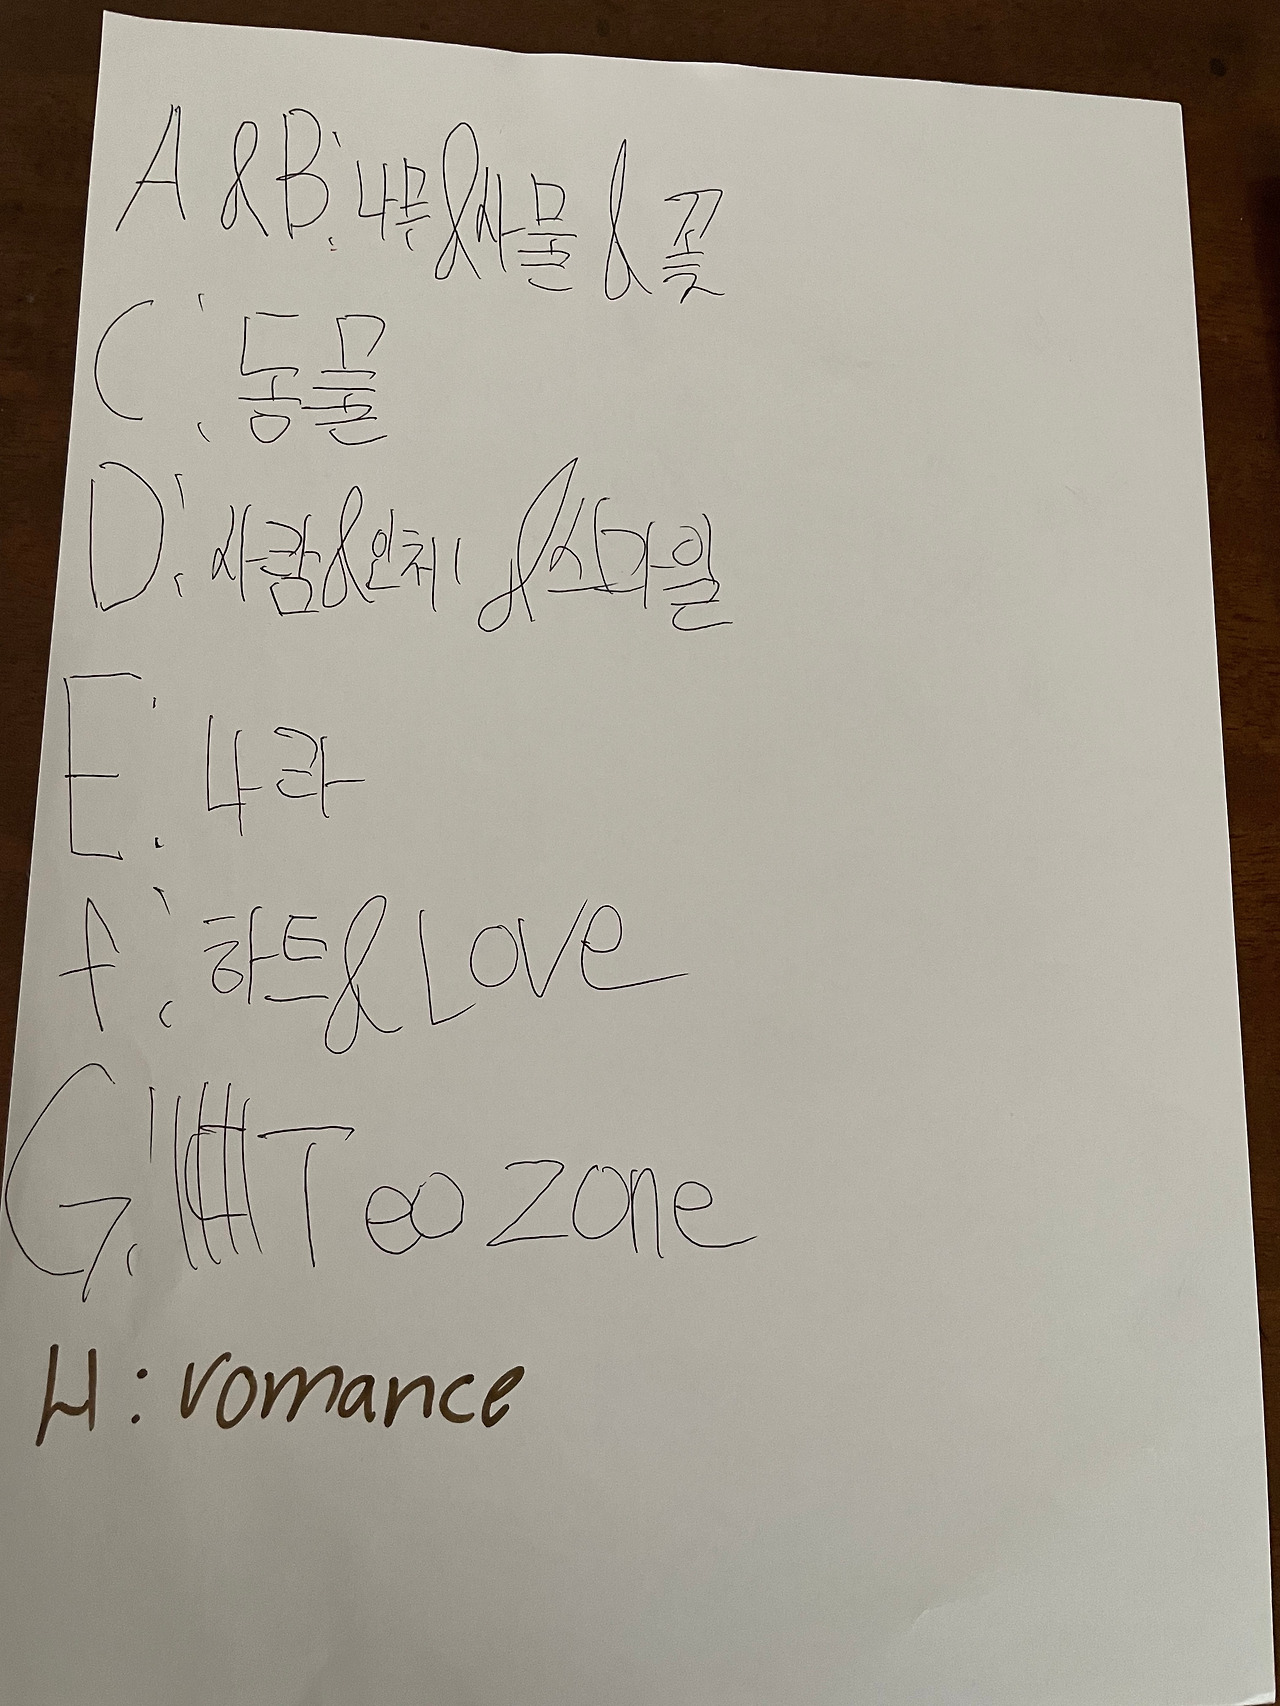 A & B: 나무 & 사물 & 꽃
C: 동물
D: 사람 & 인체 & 스타일
E: 나라
f: 하트 & Love
G: Teo zone
H: romance